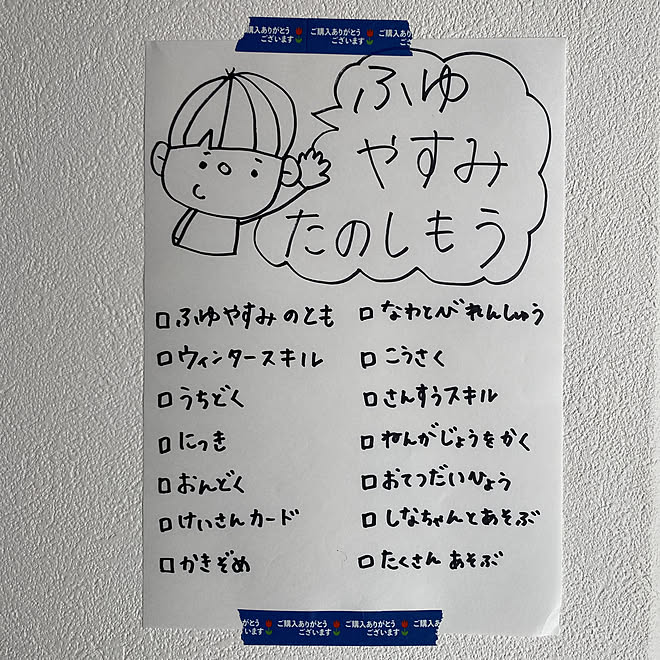 購入ありがとう ご購入ありがとう ご購入あり
ございます ございます ご
ふゆ
やすみ
たのしもう
□ ふゆやすみのとも
□ ウィンタースキル
□ うちどく
□ にっき
□ おんどく
□ けいさんカード
□ かきぞめ
□ なわとびれんしゅう
□ こうさく
□ さんすうスキル
□ ねんがじょうをかく
□ おてつだいひょう
□ しなちゃんとあそぶ
□ たくさんあそぶ
がとう ご購入ありがとう ご購入ありがとう ご
います ございます ございます